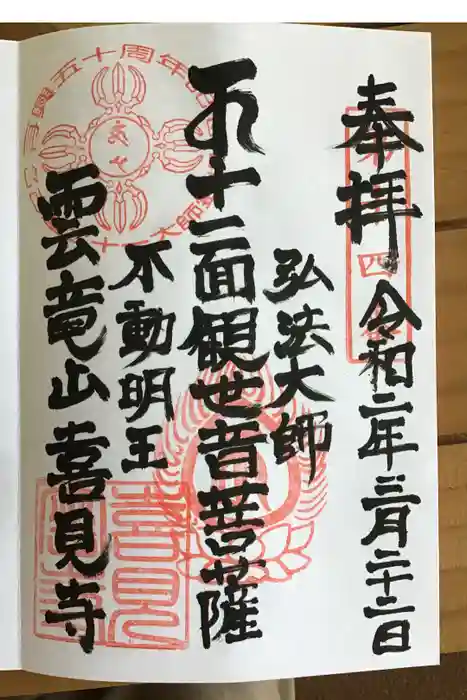 奉拝 令和二年三月二十二日
弘法大師
十一面観世音菩薩
不動明王
雲竜山 喜見寺